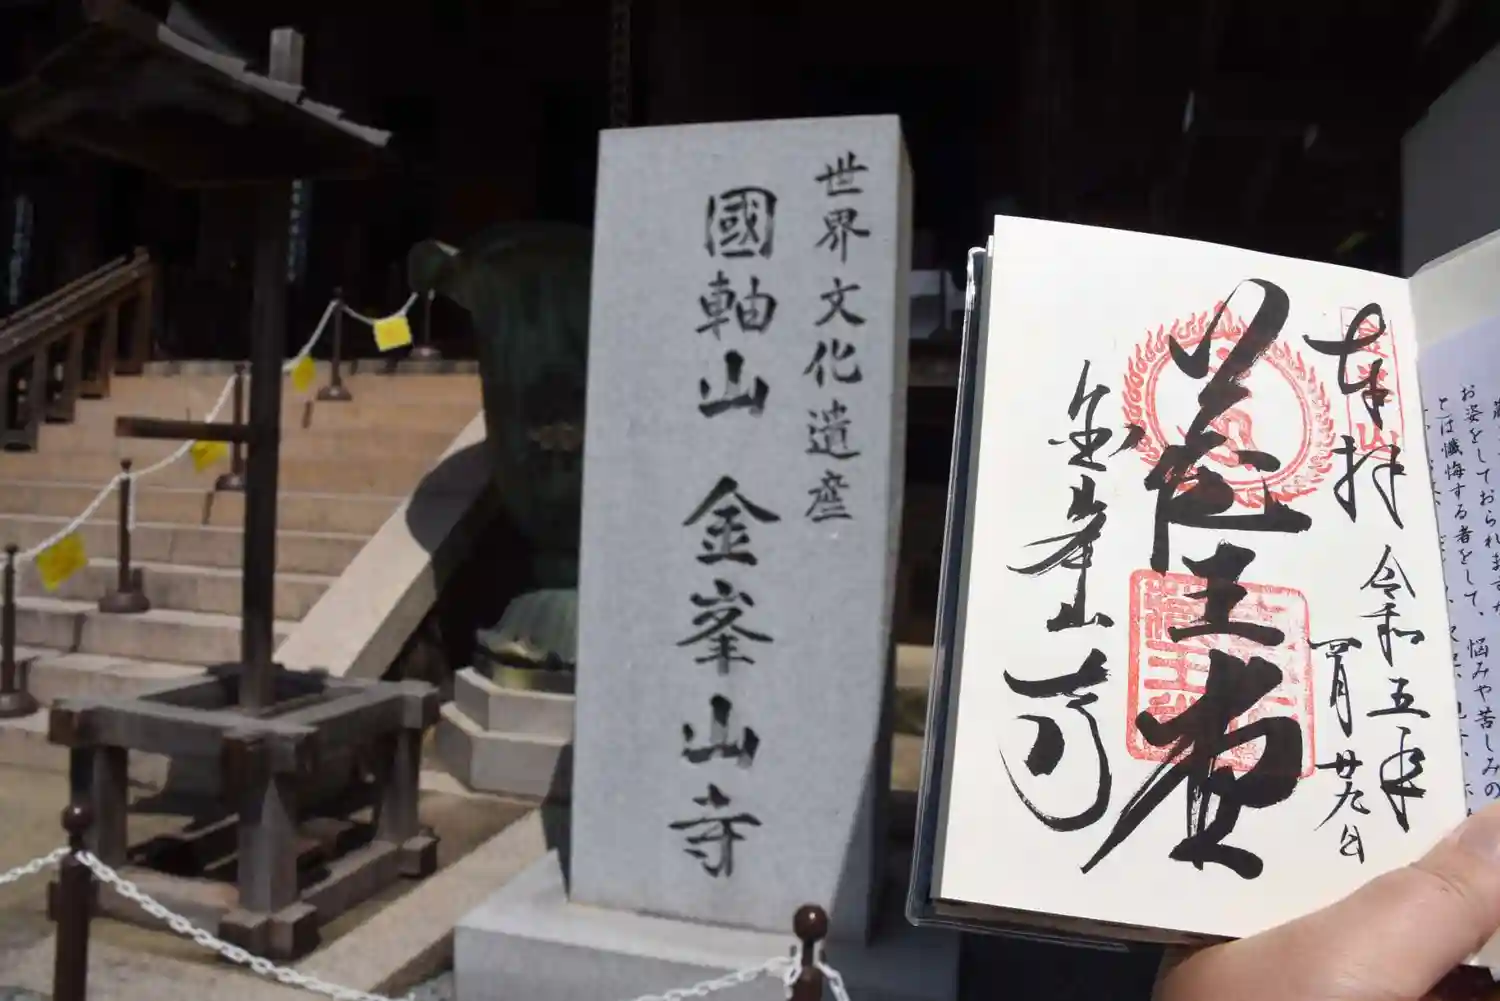 世界文化遺産
國軸山 金峯山寺
奉拝
令和五年
四月廿九日
蔵王堂
金峯山寺
お姿をしておられますが
とは懺悔する者をして、悩みや苦しみの